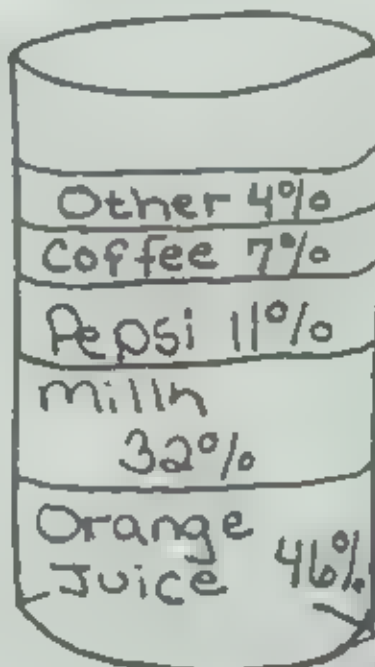 Other 4%
Coffee 7%
Pepsi 11%
Milk
32%
Orange
Juice 46%